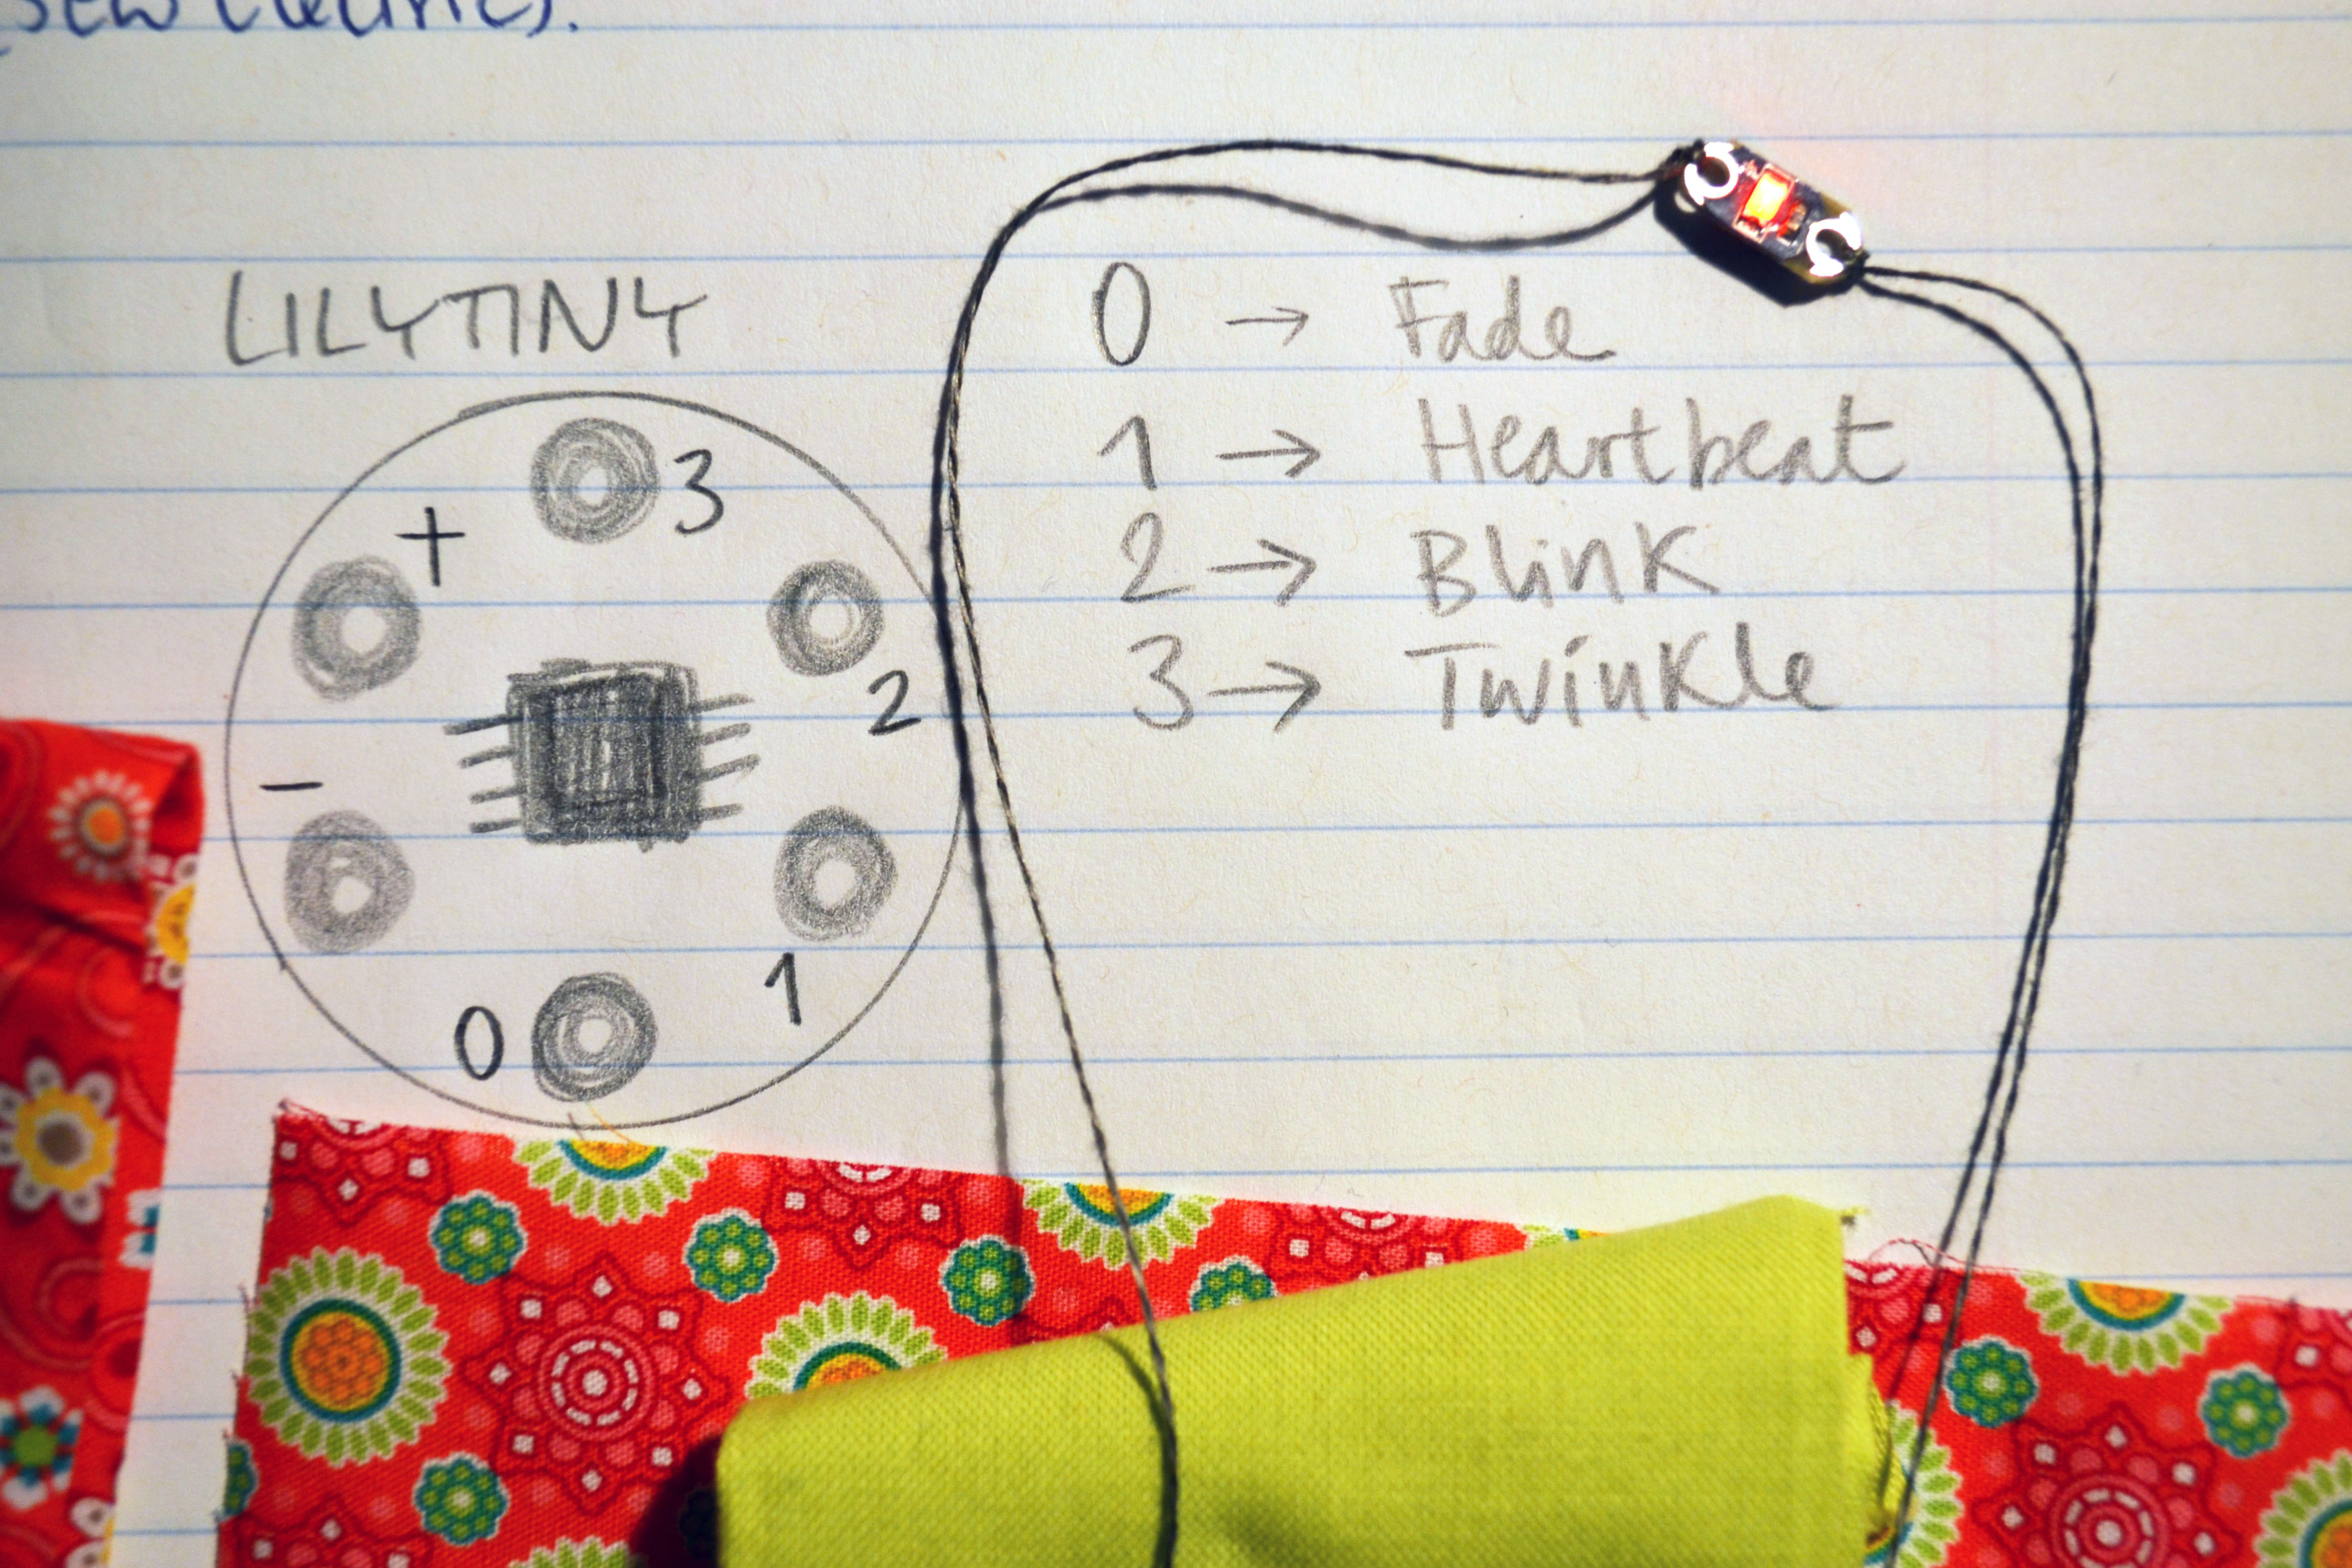 (sew electric).
LILYTINY
0 → Fade
1 → Heartbeat
2 → Blink
3 → Twinkle
3
+
2
-
1
0